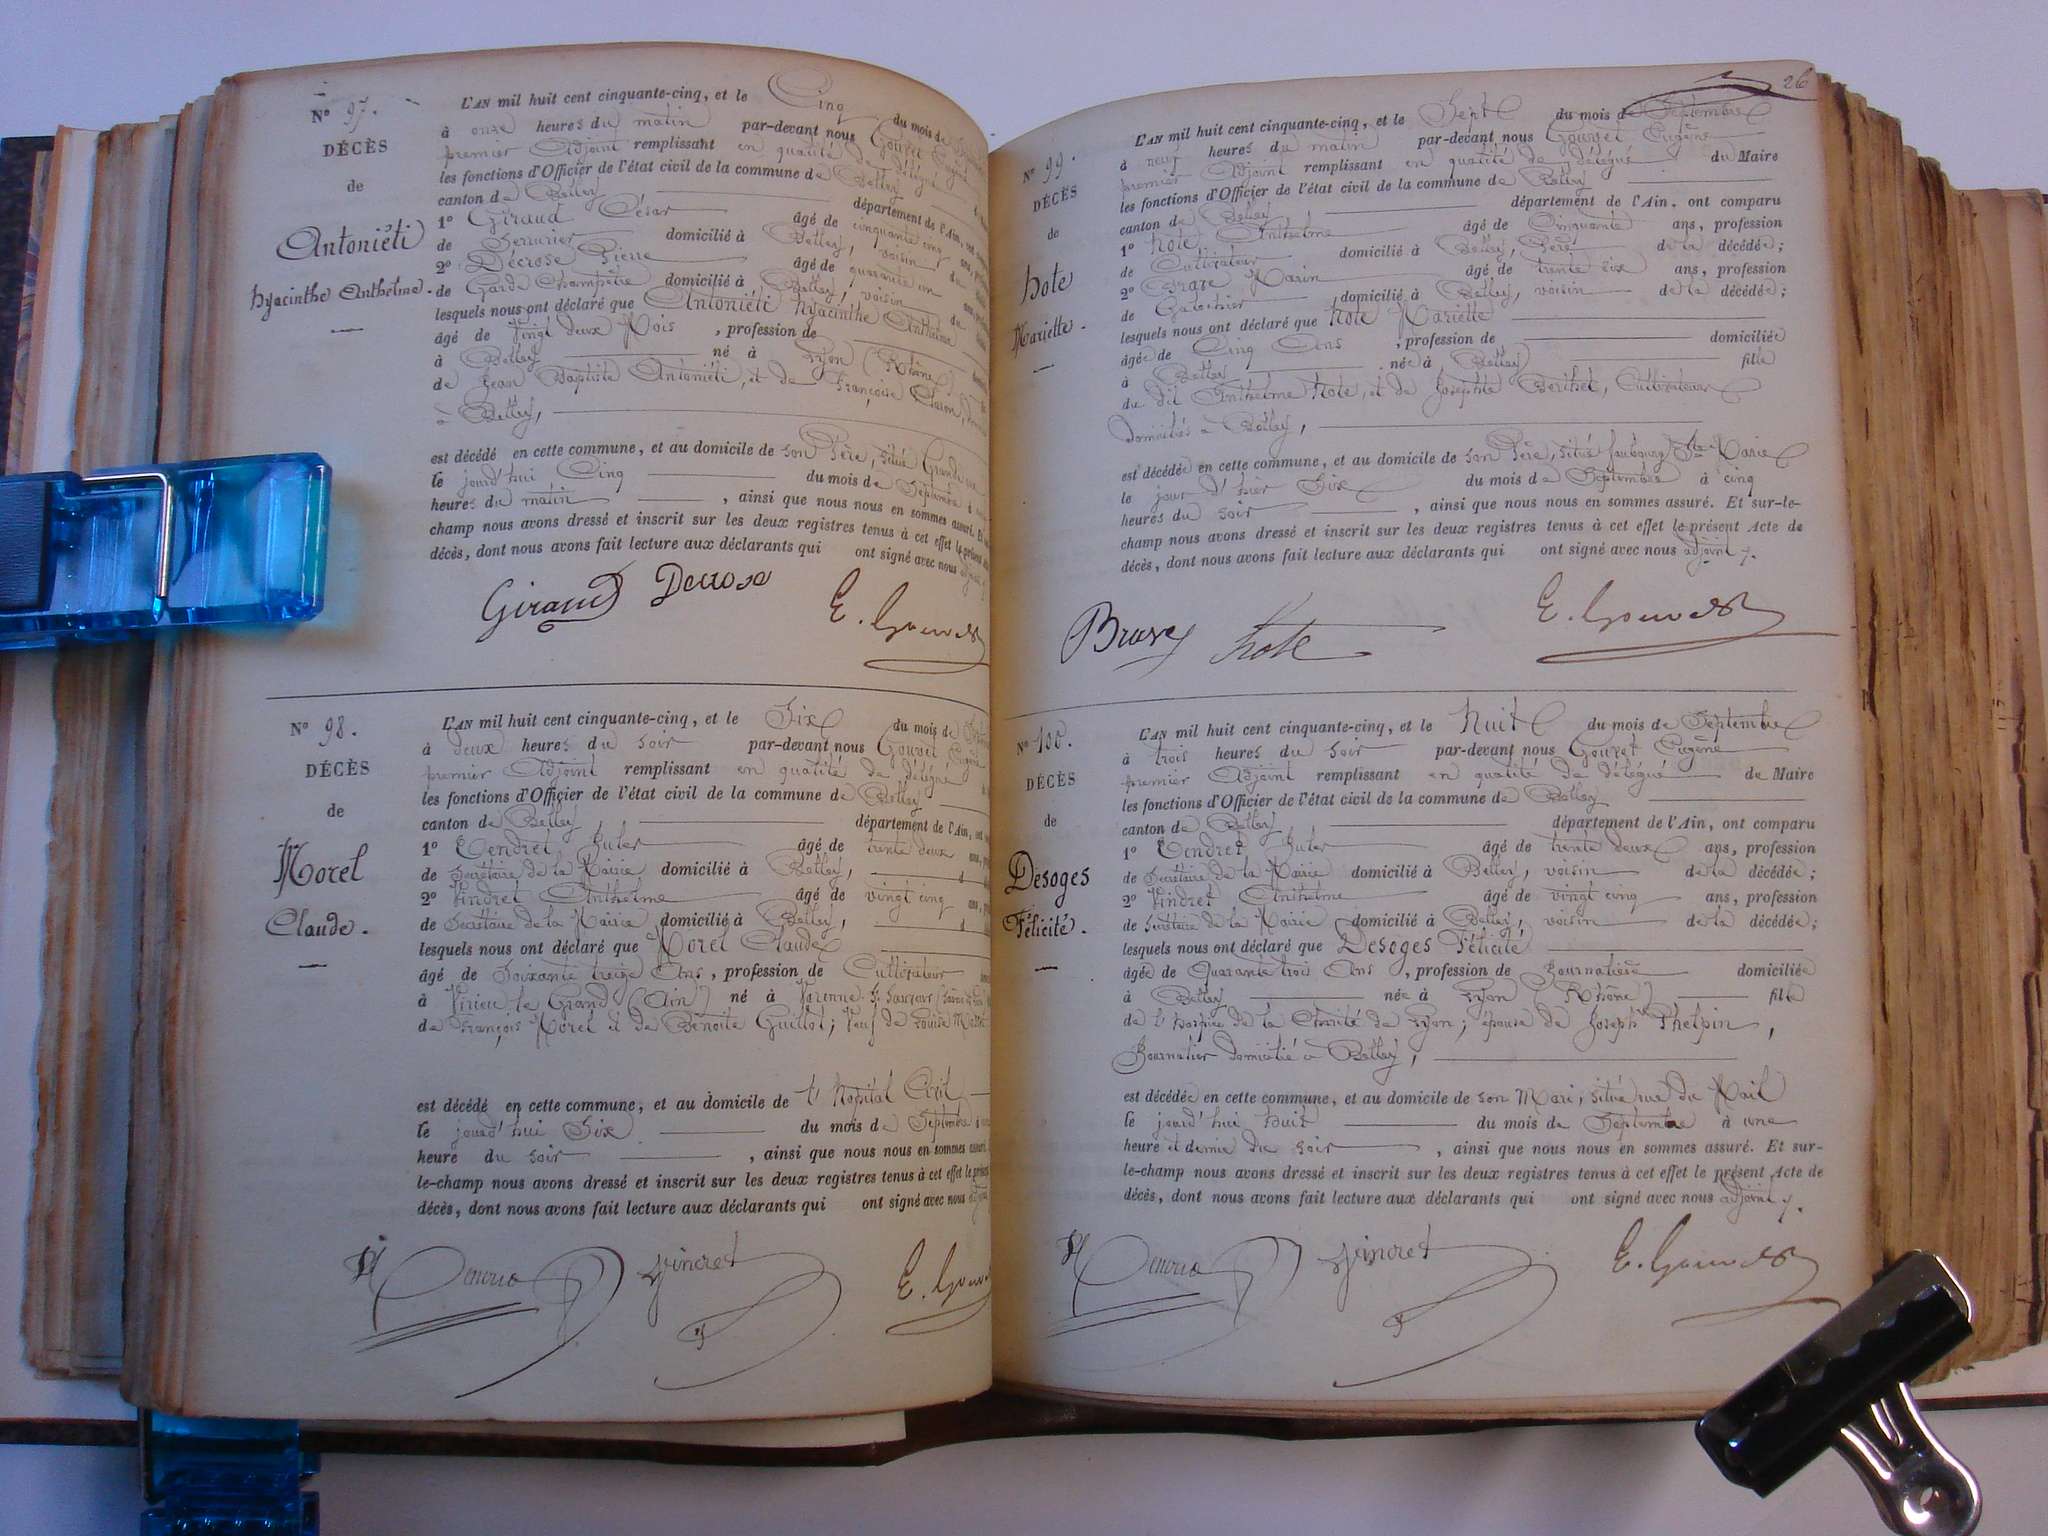 N° 97.
DÉCÈS
de
Antoniéti
hyacinthe Anthelme.
L'AN mil huit cent cinquante-cinq, et le Cinq du mois de
à onze heures du matin par-devant nous Gouvet
premier Adjoint remplissant en qualité de délégué
les fonctions d'Officier de l'état civil de la commune de Belley
canton de Belley département de l'Ain, ont
1° Giraud César âgé de cinquante cinq ans,
de Serrurier domicilié à Belley, voisin de
2° Décrose Pierre âgé de quarante un ans,
de Garde Champêtre domicilié à Belley, voisin de
lesquels nous ont déclaré que Antoniéti hyacinthe Anthelme
âgé de Vingt deux Mois, profession de
à Belley né à Lyon (Rhône)
de Jean Baptiste Antoniéti, et de Françoise Claron,
à Belley,
est décédé en cette commune, et au domicile de son Père, situé Grande rue
le jourd'hui Cinq du mois de Septembre à
heures du matin, ainsi que nous nous en sommes assuré. Et
champ nous avons dressé et inscrit sur les deux registres tenus à cet effet le présent
décès, dont nous avons fait lecture aux déclarants qui ont signé avec nous adjoint
Giraud Decrose E. Gouvet
N° 98.
DÉCÈS
de
Morel
Claude.
L'AN mil huit cent cinquante-cinq, et le Six du mois de
à deux heures du soir par-devant nous Gouvet Eugène
premier Adjoint remplissant en qualité de délégué
les fonctions d'Officier de l'état civil de la commune de Belley
canton de Belley département de l'Ain, ont
1° Tendret Juler âgé de trente deux ans,
de Secrétaire de la Mairie domicilié à Belley,
2° Vindret Anthelme âgé de vingt cinq ans,
de Secrétaire de la Mairie domicilié à Belley,
lesquels nous ont déclaré que Morel Claude
âgé de Soixante treize Ans, profession de Cultivateur
à Virieu le Grand (Ain) né à Varenne St. Sauveur
de François Morel et de Benoite Guillot; Veuf de Louise
est décédé en cette commune, et au domicile de l'hôpital Civil
le jourd'hui Six du mois de Septembre à une
heure du soir, ainsi que nous nous en sommes assuré. Et sur-
le-champ nous avons dressé et inscrit sur les deux registres tenus à cet effet le présent
décès, dont nous avons fait lecture aux déclarants qui ont signé avec nous adjoint
Vindret E. Gouvet
26
N° 99.
DÉCÈS
de
hote
Mariette.
L'AN mil huit cent cinquante-cinq, et le Sept du mois de Septembre
à neuf heures du matin par-devant nous Gouvet Eugène
premier Adjoint remplissant en qualité de délégué du Maire
les fonctions d'Officier de l'état civil de la commune de Belley
canton de Belley département de l'Ain, ont comparu
1° hote Anthelme âgé de Cinquante ans, profession
de Cultivateur domicilié à Belley, Père de la décédée;
2° Brare Marin âgé de trente six ans, profession
de Cabatier domicilié à Belley, voisin de la décédée;
lesquels nous ont déclaré que hote Mariette
âgée de Cinq Ans, profession de domiciliée
à Belley née à Belley fille
du dit Anthelme hote, et de Josephte Berthet, Cultivateurs
domiciliés à Belley,
est décédée en cette commune, et au domicile de son Père, situé faubourg Ste Marie
le jour d'hier Six du mois de Septembre à cinq
heures du soir, ainsi que nous nous en sommes assuré. Et sur-le-
champ nous avons dressé et inscrit sur les deux registres tenus à cet effet le présent Acte de
décès, dont nous avons fait lecture aux déclarants qui ont signé avec nous adjoint.
hote E. Gouvet
N° 100.
DÉCÈS
de
Désoges
Félicité.
L'AN mil huit cent cinquante-cinq, et le huit du mois de Septembre
à trois heures du soir par-devant nous Gouvet Eugène
premier Adjoint remplissant en qualité de délégué de Maire
les fonctions d'Officier de l'état civil de la commune de Belley
canton de Belley département de l'Ain, ont comparu
1° Tendret Juler âgé de trente deux ans, profession
de Secrétaire de la Mairie domicilié à Belley, voisin de la décédée;
2° Vindret Anthelme âgé de vingt cinq ans, profession
de Secrétaire de la Mairie domicilié à Belley, voisin de la décédée;
lesquels nous ont déclaré que Désoges Félicité
âgée de Quarante trois Ans, profession de Journalière domiciliée
à Belley née à Lyon (Rhône) fille
de l'hospice de la Charité de Lyon; épouse de Joseph Phelpin,
Journalier domicilié à Belley,
est décédée en cette commune, et au domicile de son Mari, situé rue du Mail
le jourd'hui huit du mois de Septembre à une
heure et demie du soir, ainsi que nous nous en sommes assuré. Et sur-
le-champ nous avons dressé et inscrit sur les deux registres tenus à cet effet le présent Acte de
décès, dont nous avons fait lecture aux déclarants qui ont signé avec nous adjoint.
Vindret E. Gouvet